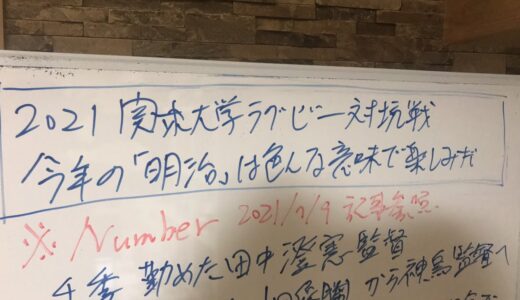 2021 関東大学ラグビー対抗戦
今年の「明治」は色んな意味で楽しみだ
※ Number 2021/7/9 記事参照
勤めた田中澄憲監督
優勝 から神鳥監督へ